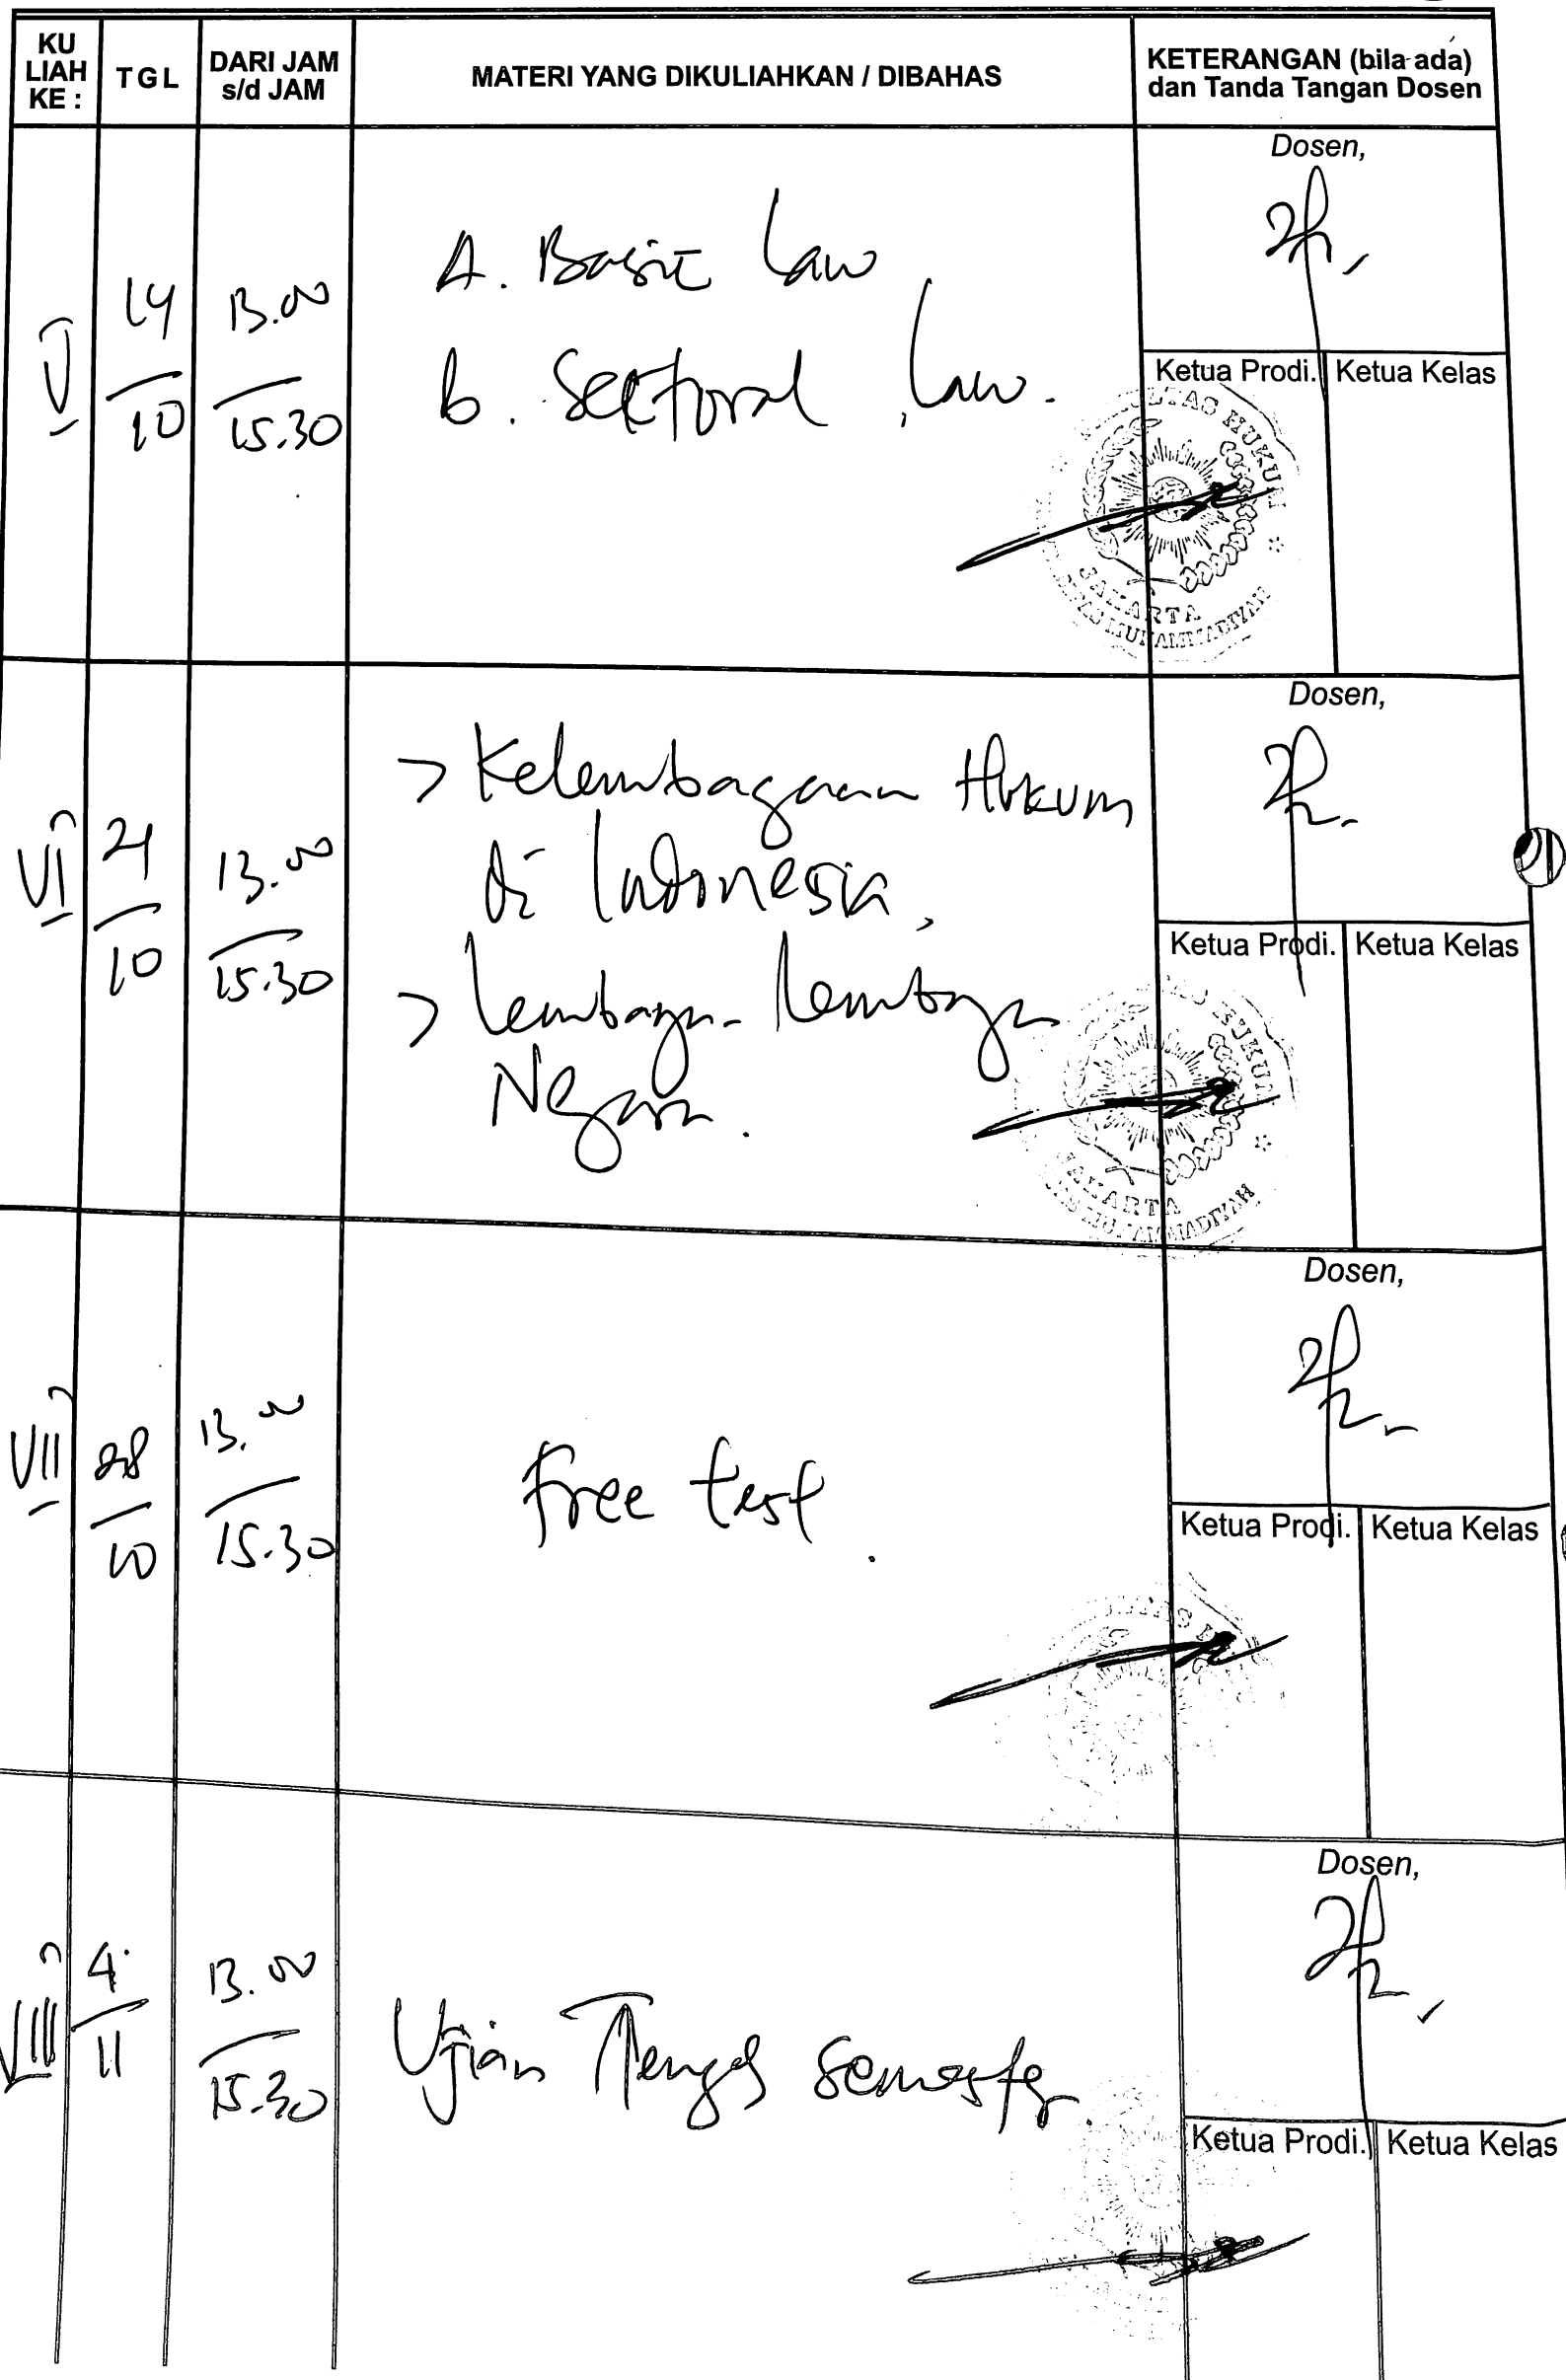 KU LIAH KE :
TGL
DARI JAM s/d JAM
MATERI YANG DIKULIAHKAN / DIBAHAS
KETERANGAN (bila ada) dan Tanda Tangan Dosen
V
14
10
13.00
15.30
A. Basic Law
b. Sectoral Law.
Dosen,
Ketua Prodi.
Ketua Kelas
HUKUM
JAKARTA
MUHAMMADIYAH
VI
21
10
13.00
15.30
> Kelembagaan Hukum
di Indonesia,
> Lembaga-lembaga
Negara.
Dosen,
Ketua Prodi.
Ketua Kelas
HUKUM
JAKARTA
MUHAMMADIYAH
VII
28
10
13.00
15.30
Free test.
Dosen,
Ketua Prodi.
Ketua Kelas
VIII
4
11
13.00
15.30
Ujian Tengah Semester.
Dosen,
Ketua Prodi.
Ketua Kelas